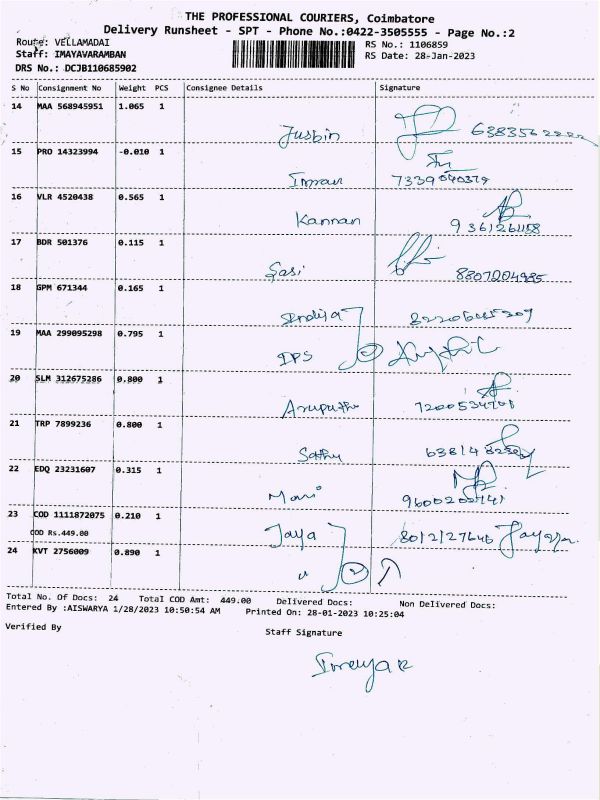 THE PROFESSIONAL COURIERS, Coimbatore
Delivery Runsheet - SPT - Phone No.:0422-3505555 - Page No.:2
Route: VELLAMADAI
RS No.: 1106859
Staff: IMAYAVARAMBAN
RS Date: 28-Jan-2023
DRS No.: DCJB110685902
S No Consignment No Weight PCS Consignee Details Signature
14 MAA 568945951 1.065 1
Jusbin
15 PRO 14323994 -0.010 1
Imran 7339040379
16 VLR 4520438 0.565 1
Kannan
17 BDR 501376 0.115 1
Sasi 8807204985
18 GPM 671344 0.165 1
19 MAA 299095298 0.795 1
DPS
20 SLM 312675286 0.800 1
21 TRP 7899236 0.800 1
22 EDQ 23231607 0.315 1
Mani
23 COD 1111872075 0.210 1
Jaya 8012127646
COD Rs.449.00
24 KVT 2756009 0.890 1
Total No. Of Docs: 24 Total COD Amt: 449.00 Delivered Docs: Non Delivered Docs:
Entered By :AISWARYA 1/28/2023 10:50:54 AM Printed On: 28-01-2023 10:25:04
Verified By
Staff Signature